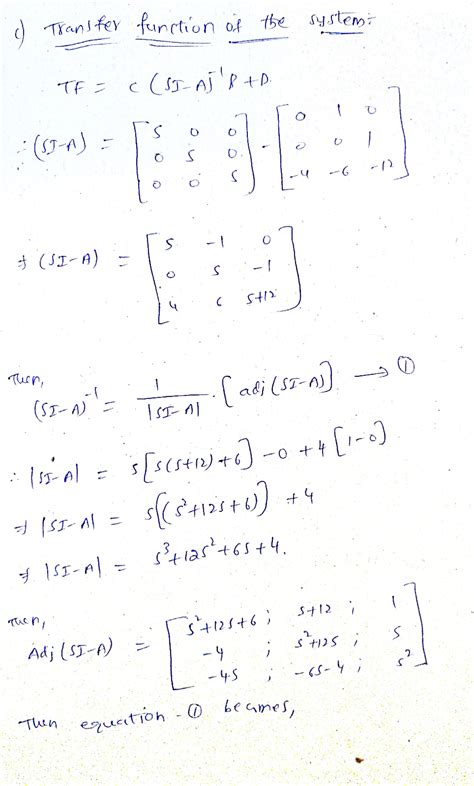 c) Transfer function of the system:-
TF = C (SI-A)^-1 B + D.
∴ (SI-A) = [S 0 0; 0 S 0; 0 0 S] - [0 1 0; 0 0 1; -4 -6 -12]
⇒ (SI-A) = [S -1 0; 0 S -1; 4 6 S+12]
Then,
(SI-A)^-1 = 1/|SI-A| . [adj(SI-A)] → ①
∴ |SI-A| = S[S(S+12)+6] - 0 + 4[1-0]
⇒ |SI-A| = S[(S²+12S+6)] + 4
⇒ |SI-A| = S³+12S²+6S+4.
Then,
Adj(SI-A) = [S²+12S+6 ; S+12 ; 1
-4 ; S²+12S ; S
-4S ; -6S-4 ; S²]
Then equation-① becomes,